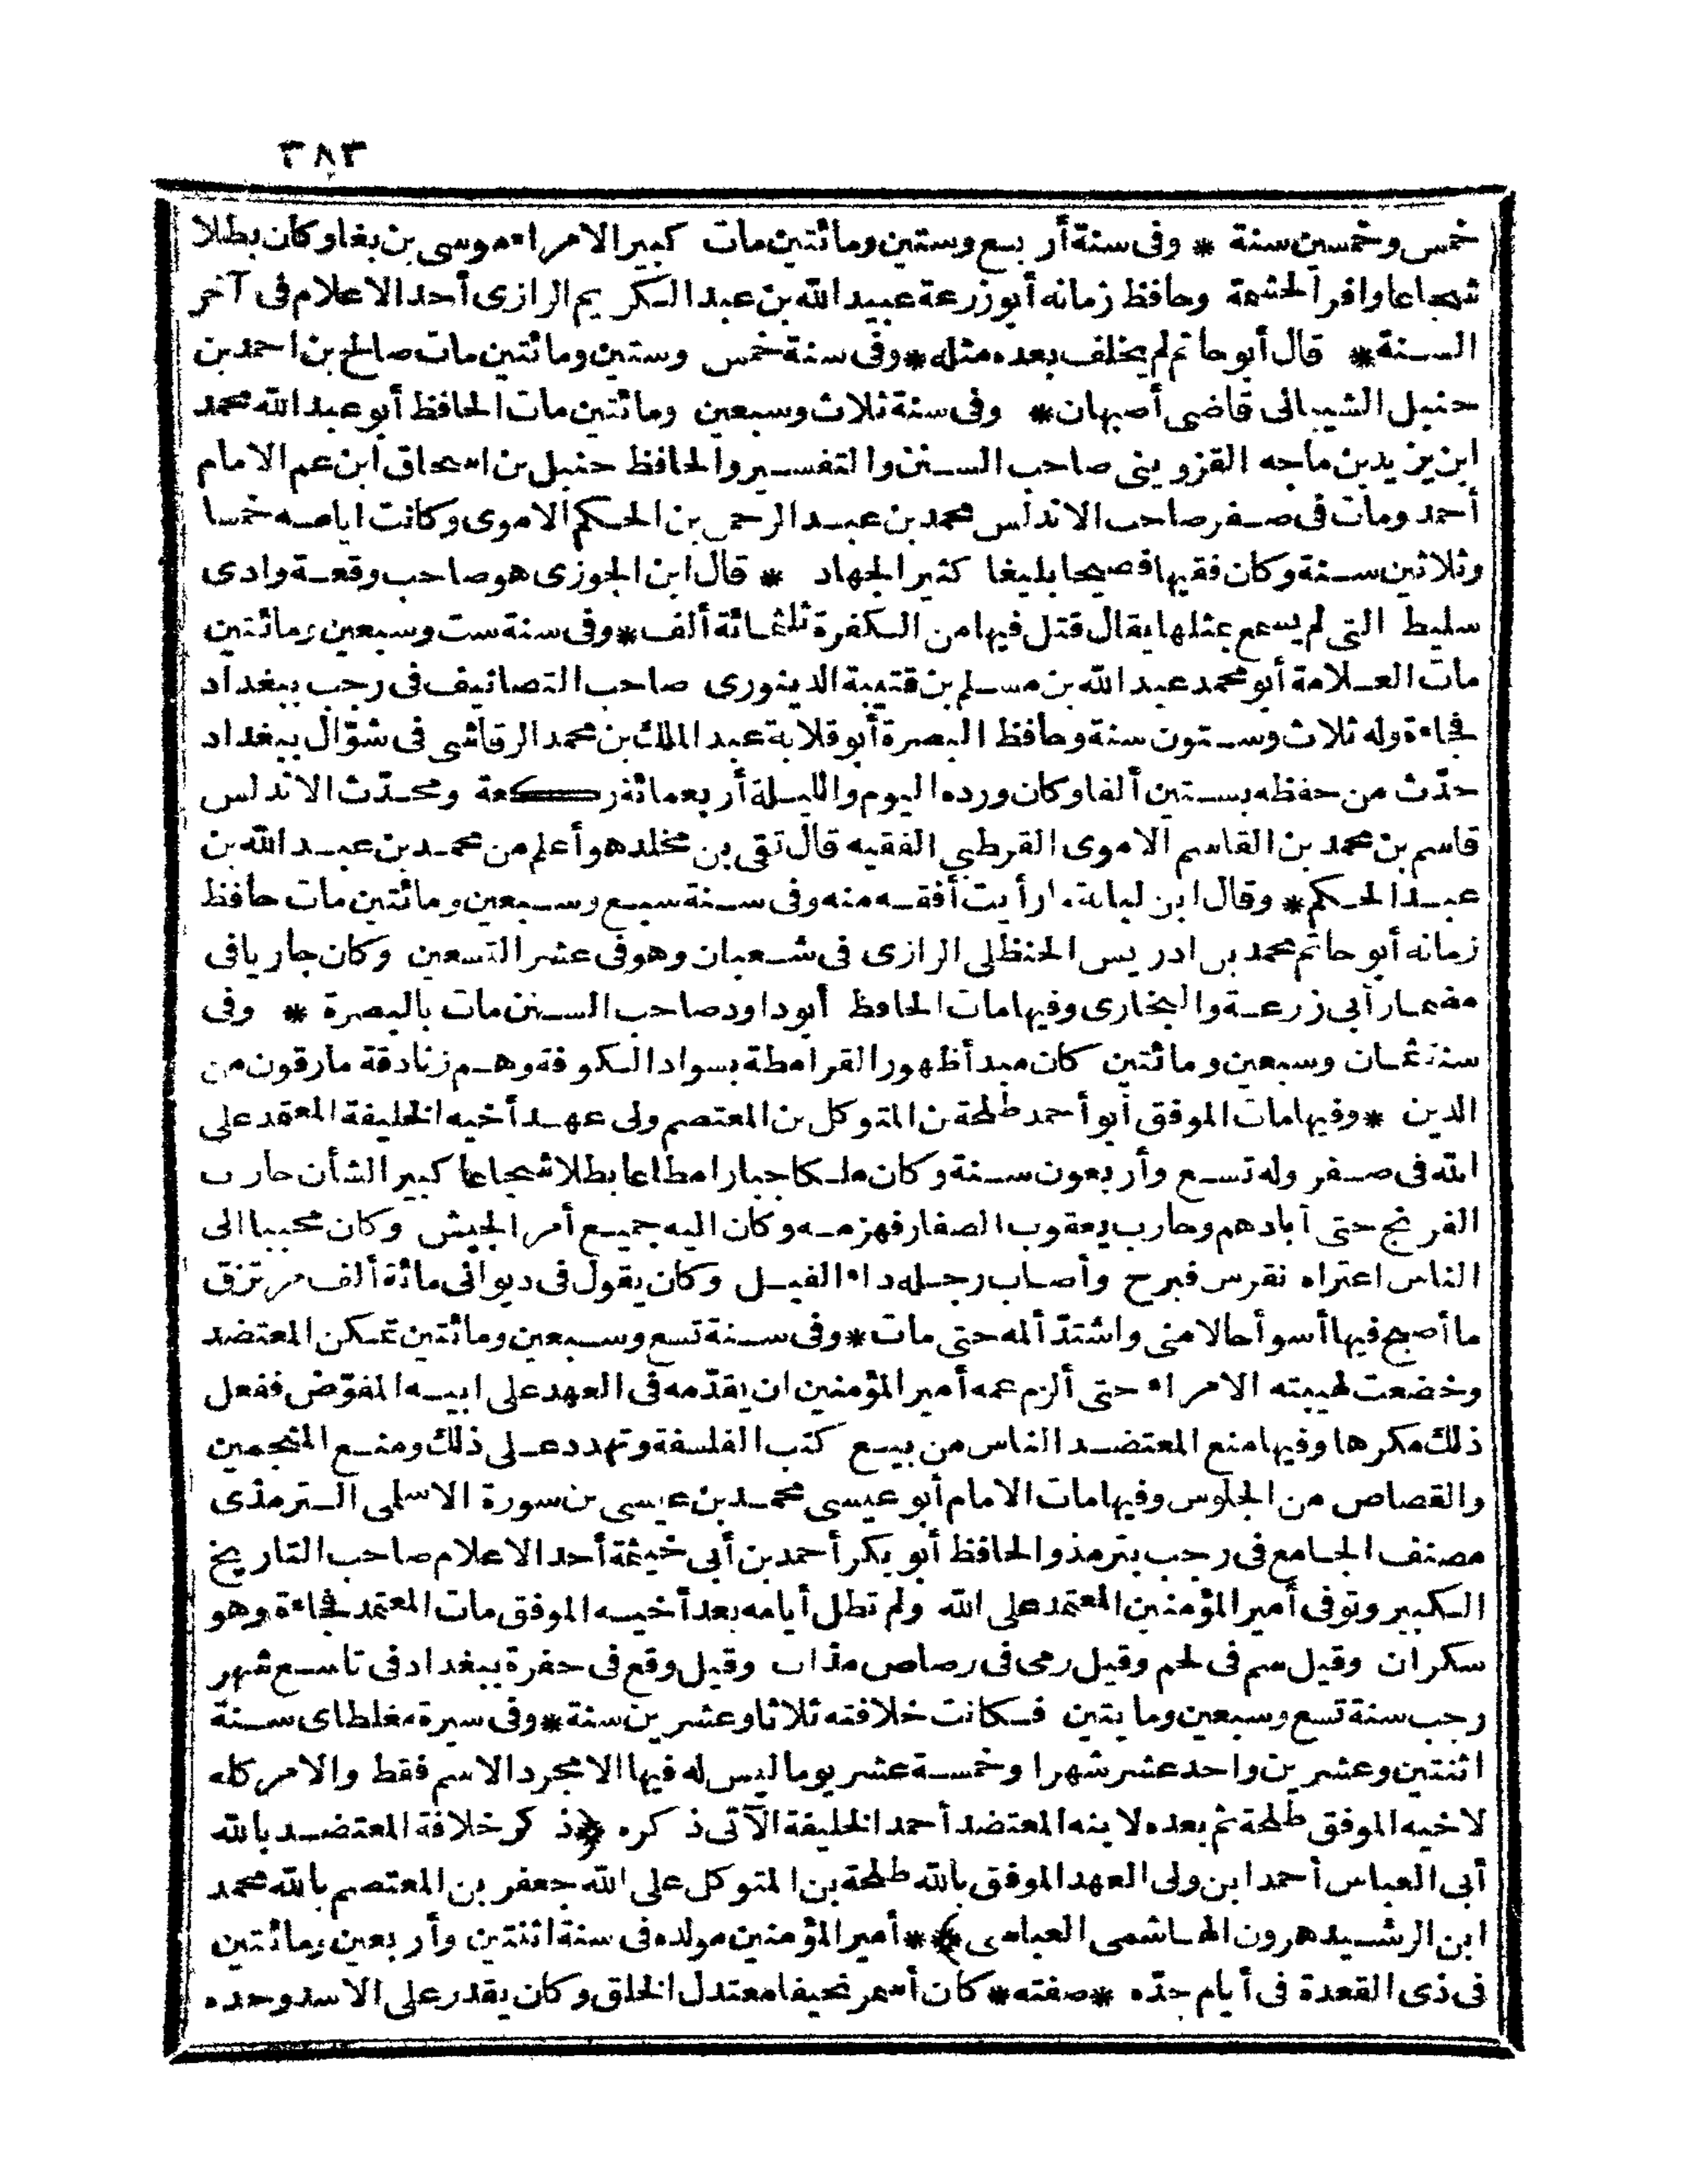 ٣٨٣
خمس وخمسين سنة * وفى سنة أربع وستين ومائتين مات كبير الامراء موسى بن بغا وكان بطلا
شجاعا وافر الحشمة وحافظ زمانه أبو زرعة عبيد الله بن عبد الكريم الرازى أحد الاعلام فى آخر
السنة * قال أبو حاتم لم يخلف بعده مثله * وفى سنة خمس وستين ومائتين مات صالح بن احمد بن
حنبل الشيبانى قاضى أصبهان * وفى سنة ثلاث وسبعين ومائتين مات الحافظ أبو عبد الله محمد
ابن يزيد بن ماجه القزوينى صاحب السنن والتفسير والحافظ حنبل بن اسحاق ابن عم الامام
أحمد ومات فى صفر صاحب الاندلس محمد بن عبد الرحمن بن الحكم الاموى وكانت أيامه خمسا
وثلاثين سنة وكان فقيها فصيحا بليغا كثير الجهاد * قال ابن الجوزى هو صاحب وقعة وادى
سليط التى لم يسمع بمثلها يقال قتل فيها من الكفرة ثلثمائة ألف * وفى سنة ست وسبعين ومائتين
مات العلامة أبو محمد عبد الله بن مسلم بن قتيبة الدينورى صاحب التصانيف فى رجب ببغداد
فجاءة وله ثلاث وستون سنة وحافظ البصرة أبو قلابة عبد الملك بن محمد الرقاشى فى شوّال ببغداد
حدّث من حفظه بستين ألفا وكان ورده اليوم والليلة أربعمائة ركعة ومحدّث الاندلس
قاسم بن محمد بن القاسم الاموى القرطبى الفقيه قال تقى بن مخلد هو أعلم من محمد بن عبد الله بن
عبد الحكم * وقال ابن لبابة ما رأيت أفقه منه وفى سنة سبع وسبعين ومائتين مات حافظ
زمانه أبو حاتم محمد بن ادريس الحنظلى الرازى فى شعبان وهو فى عشر التسعين وكان جاريا فى
مضمار أبى زرعة والبخارى وفيها مات الحافظ أبو داود صاحب السنن مات بالبصرة * وفى
سنة ثمان وسبعين ومائتين كان مبدأ ظهور القرامطة بسواد الكوفة وهم زنادقة مارقون من
الدين * وفيها مات الموفق أبو أحمد طلحة بن المتوكل بن المعتصم ولى عهد أخيه الخليفة المعتمد على
الله فى صفر وله تسع وأربعون سنة وكان ملكا جبارا مطاعا بطلا شجاعا كبير الشأن حارب
الفرنج حتى أبادهم وحارب يعقوب الصفار فهزمه وكان اليه جميع أمر الجيش وكان محببا الى
الناس اعتراه نقرس فبرح وأصاب رجله داء الفيل وكان يقول فى ديوانى مائة ألف مرتزق
ما أصبح فيها أسوأ حالا منى واشتدّ ألمه حتى مات * وفى سنة تسع وسبعين ومائتين تمكن المعتضد
وخضعت لهيبته الامراء حتى ألزم عمه أمير المؤمنين ان يقدّمه فى العهد على ابنه المفوّض ففعل
ذلك مكرها وفيها منع المعتضد الناس من بيع كتب الفلسفة وتهدد على ذلك ومنع المنجمين
والقصاص من الجلوس وفيها مات الامام أبو عيسى محمد بن عيسى بن سورة الاسلمى الترمذى
مصنف الجامع فى رجب بترمذ والحافظ أبو بكر أحمد بن أبى خيثمة أحد الاعلام صاحب التاريخ
الكبير وتوفى أمير المؤمنين المعتمد على الله ولم تطل أيامه بعد أخيه الموفق مات المعتمد فجاءة وهو
سكران وقيل سم فى لحم وقيل رمى فى رصاص مذاب وقيل وقع فى حفرة ببغداد فى تاسع شهر
رجب سنة تسع وسبعين ومايتين فكانت خلافته ثلاثا وعشرين سنة * وفى سيرة مغلطاى سنة
اثنتين وعشرين واحد عشر شهرا وخمسة عشر يوما ليس له فيها الا مجرد الاسم فقط والامر كله
لاخيه الموفق طلحة ثم بعده لابنه المعتضد أحمد الخليفة الآتى ذكره ﴿ذكر خلافة المعتضد بالله
أبى العباس أحمد ابن ولى العهد الموفق بالله طلحة بن المتوكل على الله جعفر بن المعتصم بالله محمد
ابن الرشيد هرون الهاشمى العباسى﴾ * أمير المؤمنين مولده فى سنة اثنتين وأربعين ومائتين
فى ذى القعدة فى أيام جدّه * صفته * كان أسمر نحيفا معتدل الخلق وكان يقدر على الاسد وحده